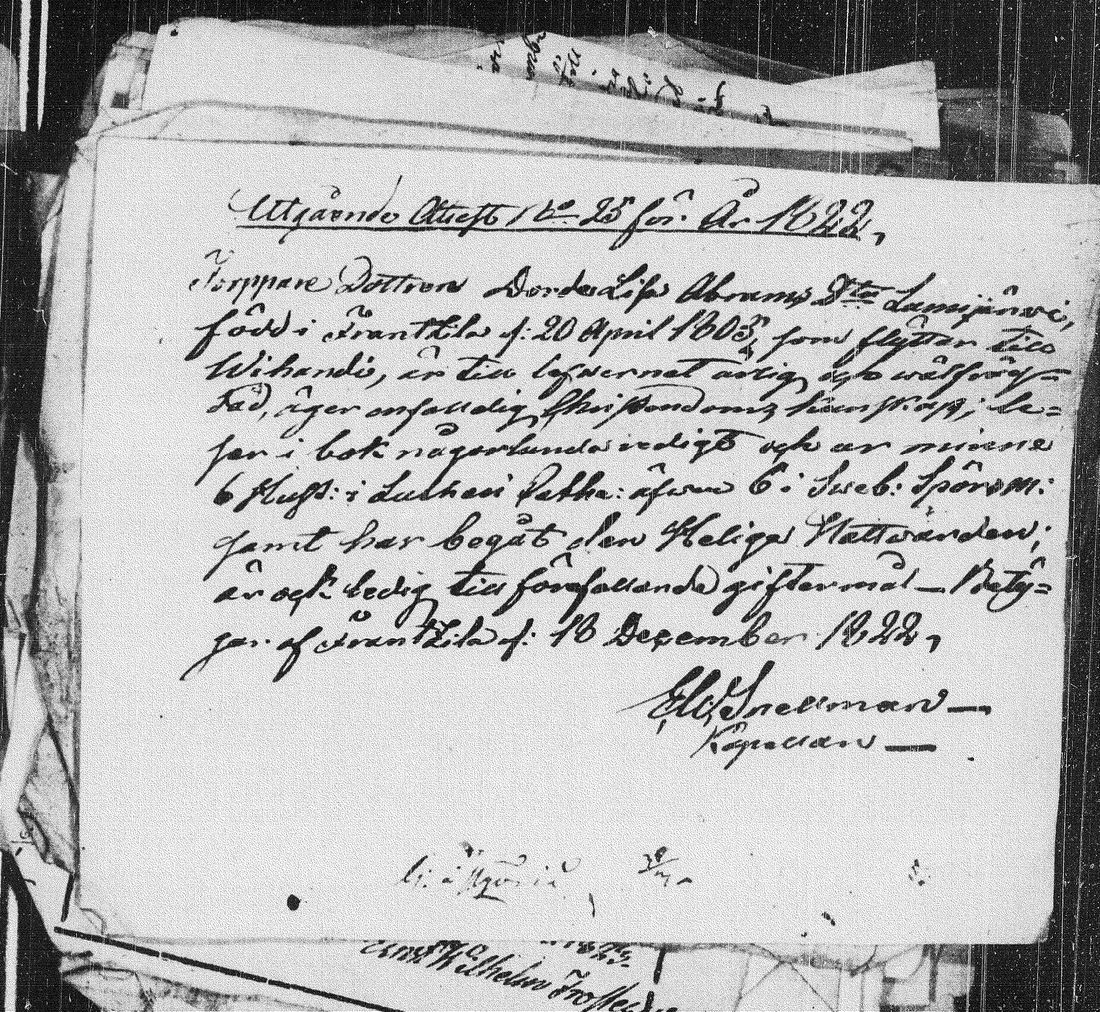 Utgående Attest No 25 för År 1822,
Torppare Dottren Dorde Lisa Abrams Dtr Lamijärwi,
född i Frantzila d: 20 April 1805, som flyttar till
Wihandi, är till lefwernet ärlig och wälfräg-
dad, äger enfalldig Christendoms kunskap; lä-
ser i bok någorlunda redigt och ar minne
6 Hufst: i Lutheri Cathe: äfwen 6 i Sweb: Spörsm:
samt har begåt den Heliga Nattwarden;
är ock ledig till förefallande giftermål — Bety-
gar af Frantzila d: 18 December 1822,
Snellman —
Kapellan —
Wilhelm